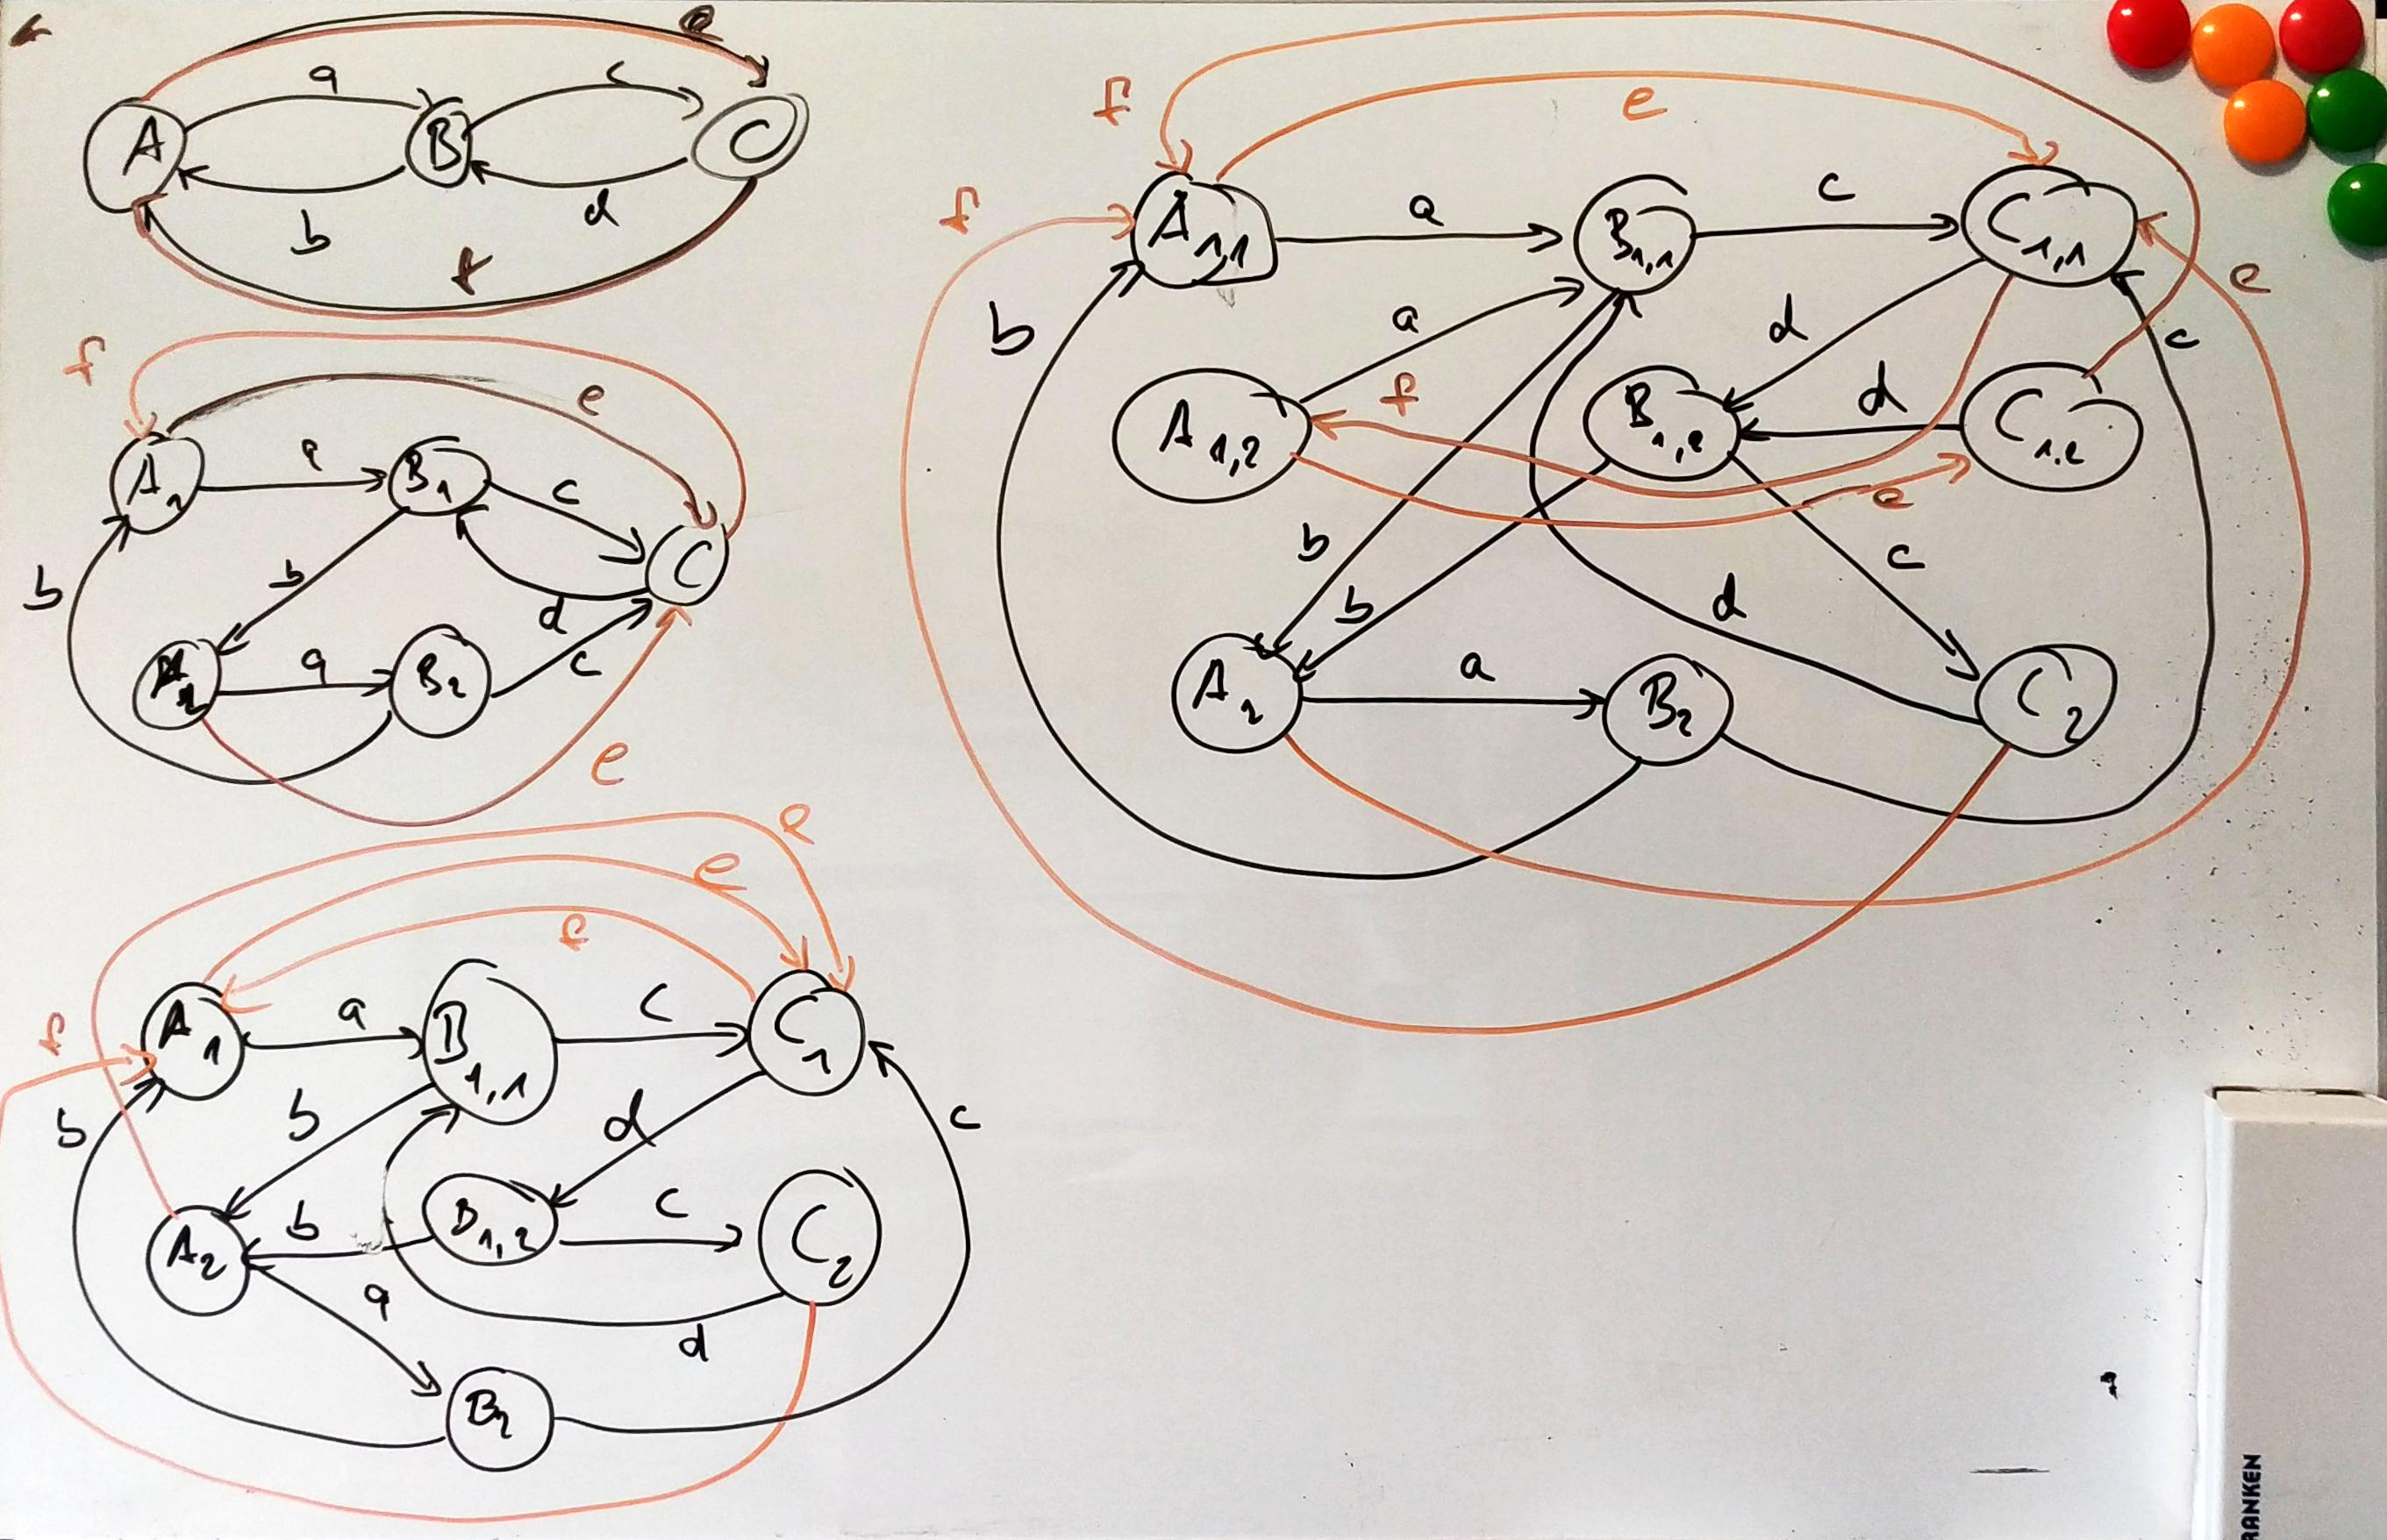 e
a
c
A
B
C
b
d
f
f
e
A1
a
B1
c
C
b
b
d
A2
a
B2
c
e
e
e
f
f
A1
a
B1,1
c
C1
b
b
d
c
A2
b
B1,2
c
C2
a
d
B2
f
e
f
A1,1
a
B1,1
c
C1,1
e
b
a
d
c
A1,2
f
B1,2
d
C1,2
e
b
b
c
d
A2
a
B2
C2
RANKEN